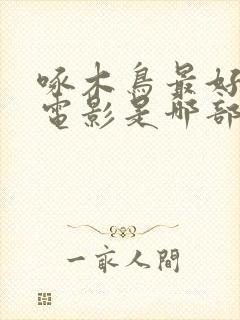 啄木鳥最好
電影是哪部
一家人間